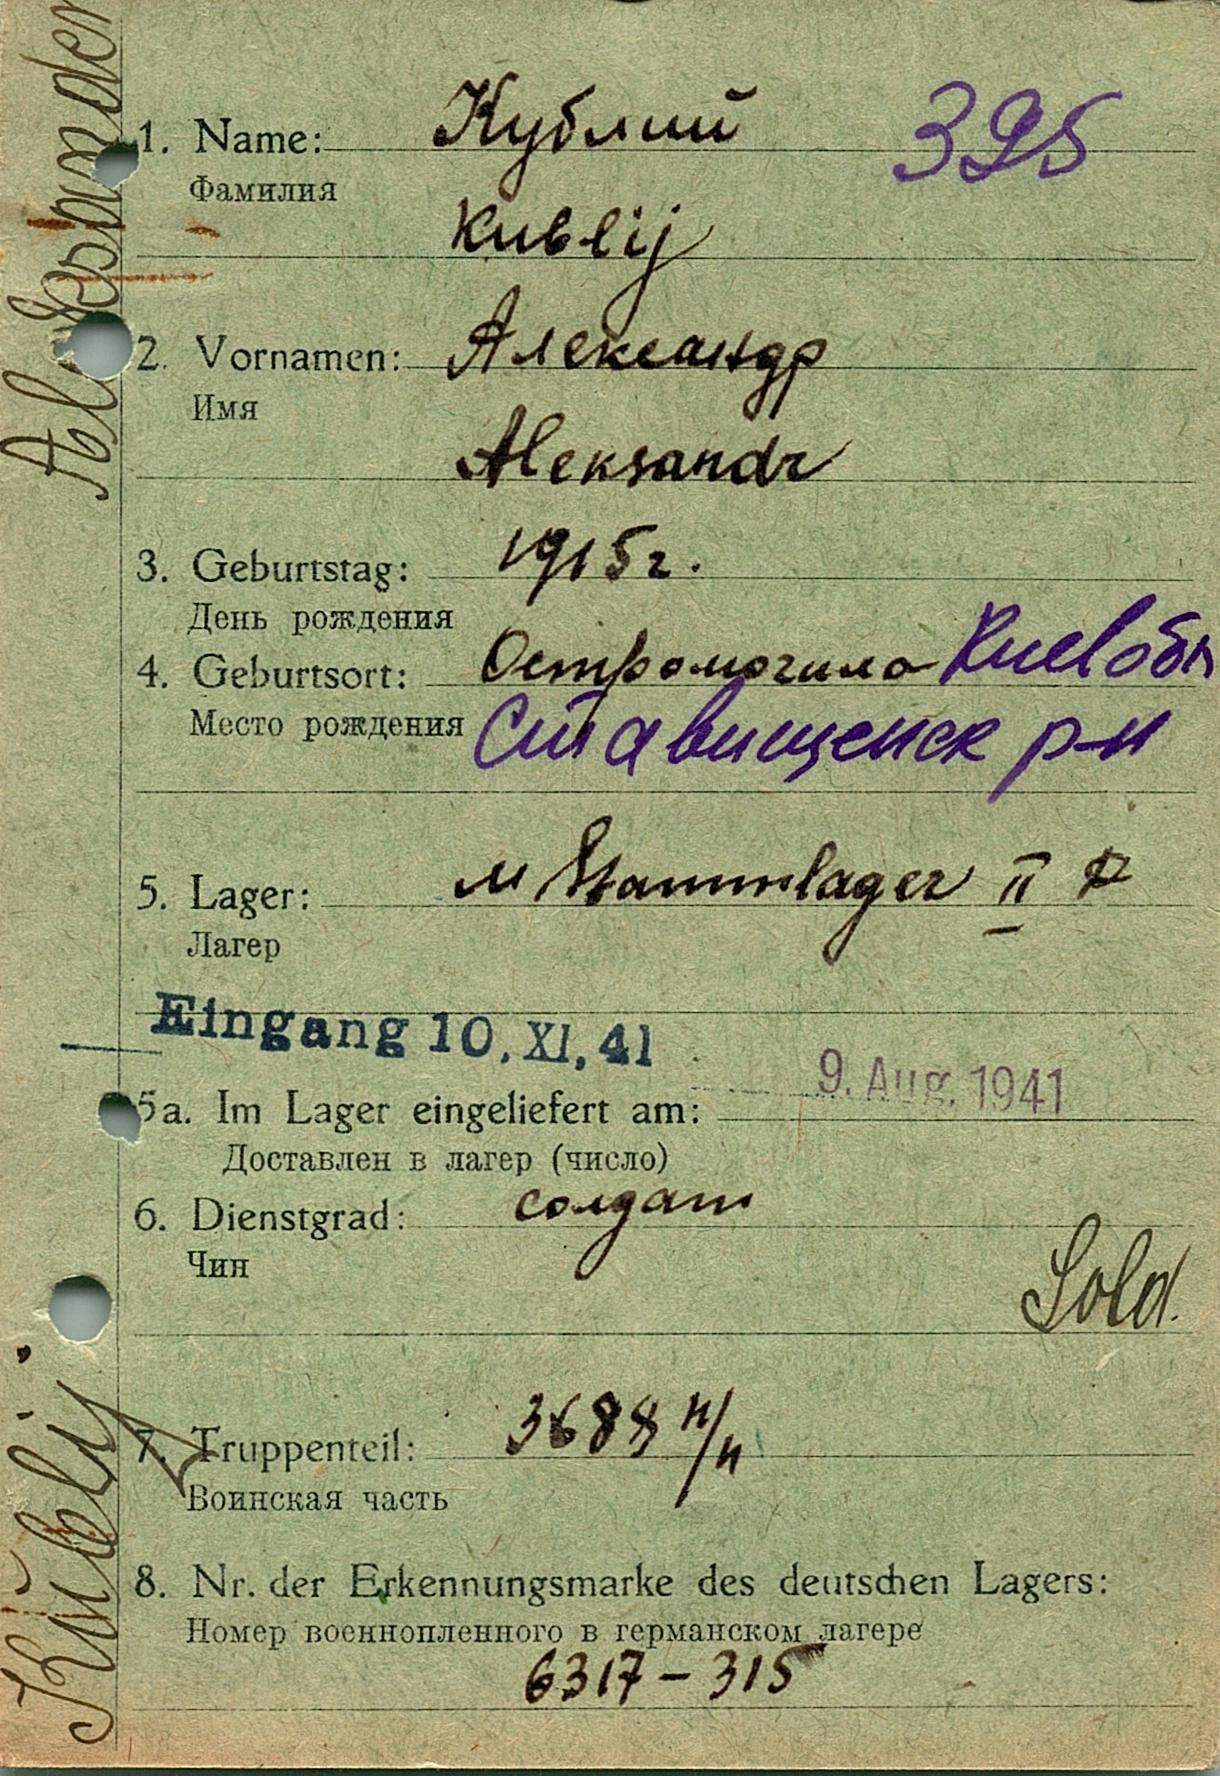 1. Name: Кублий 395
Фамилия
Kublij
2. Vornamen: Александр
Имя
Aleksandr
3. Geburtstag: 1915 г.
День рождения
4. Geburtsort: Остромогила Киев обл
Место рождения Ставищенск р-н
5. Lager: M Stammlager II
Лагер
Eingang 10. XI. 41
9. Aug. 1941
5a. Im Lager eingeliefert am:
Доставлен в лагер (число)
6. Dienstgrad: солдат
Чин
Sold.
7. Truppenteil: 3688
Воинская часть
8. Nr. der Erkennungsmarke des deutschen Lagers:
Номер военнопленного в германском лагере
6317 – 315
Kublij
Aleksander